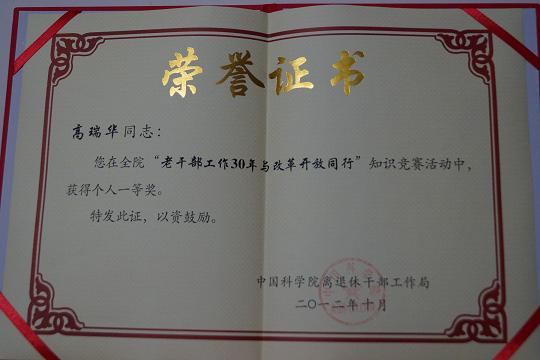 荣誉证书
高瑞华同志：
您在全院“老干部工作30年与改革开放同行”知识竞赛活动中，
获得个人一等奖。
特发此证，以资鼓励。
中国科学院离退休干部工作局
二〇一二年十月